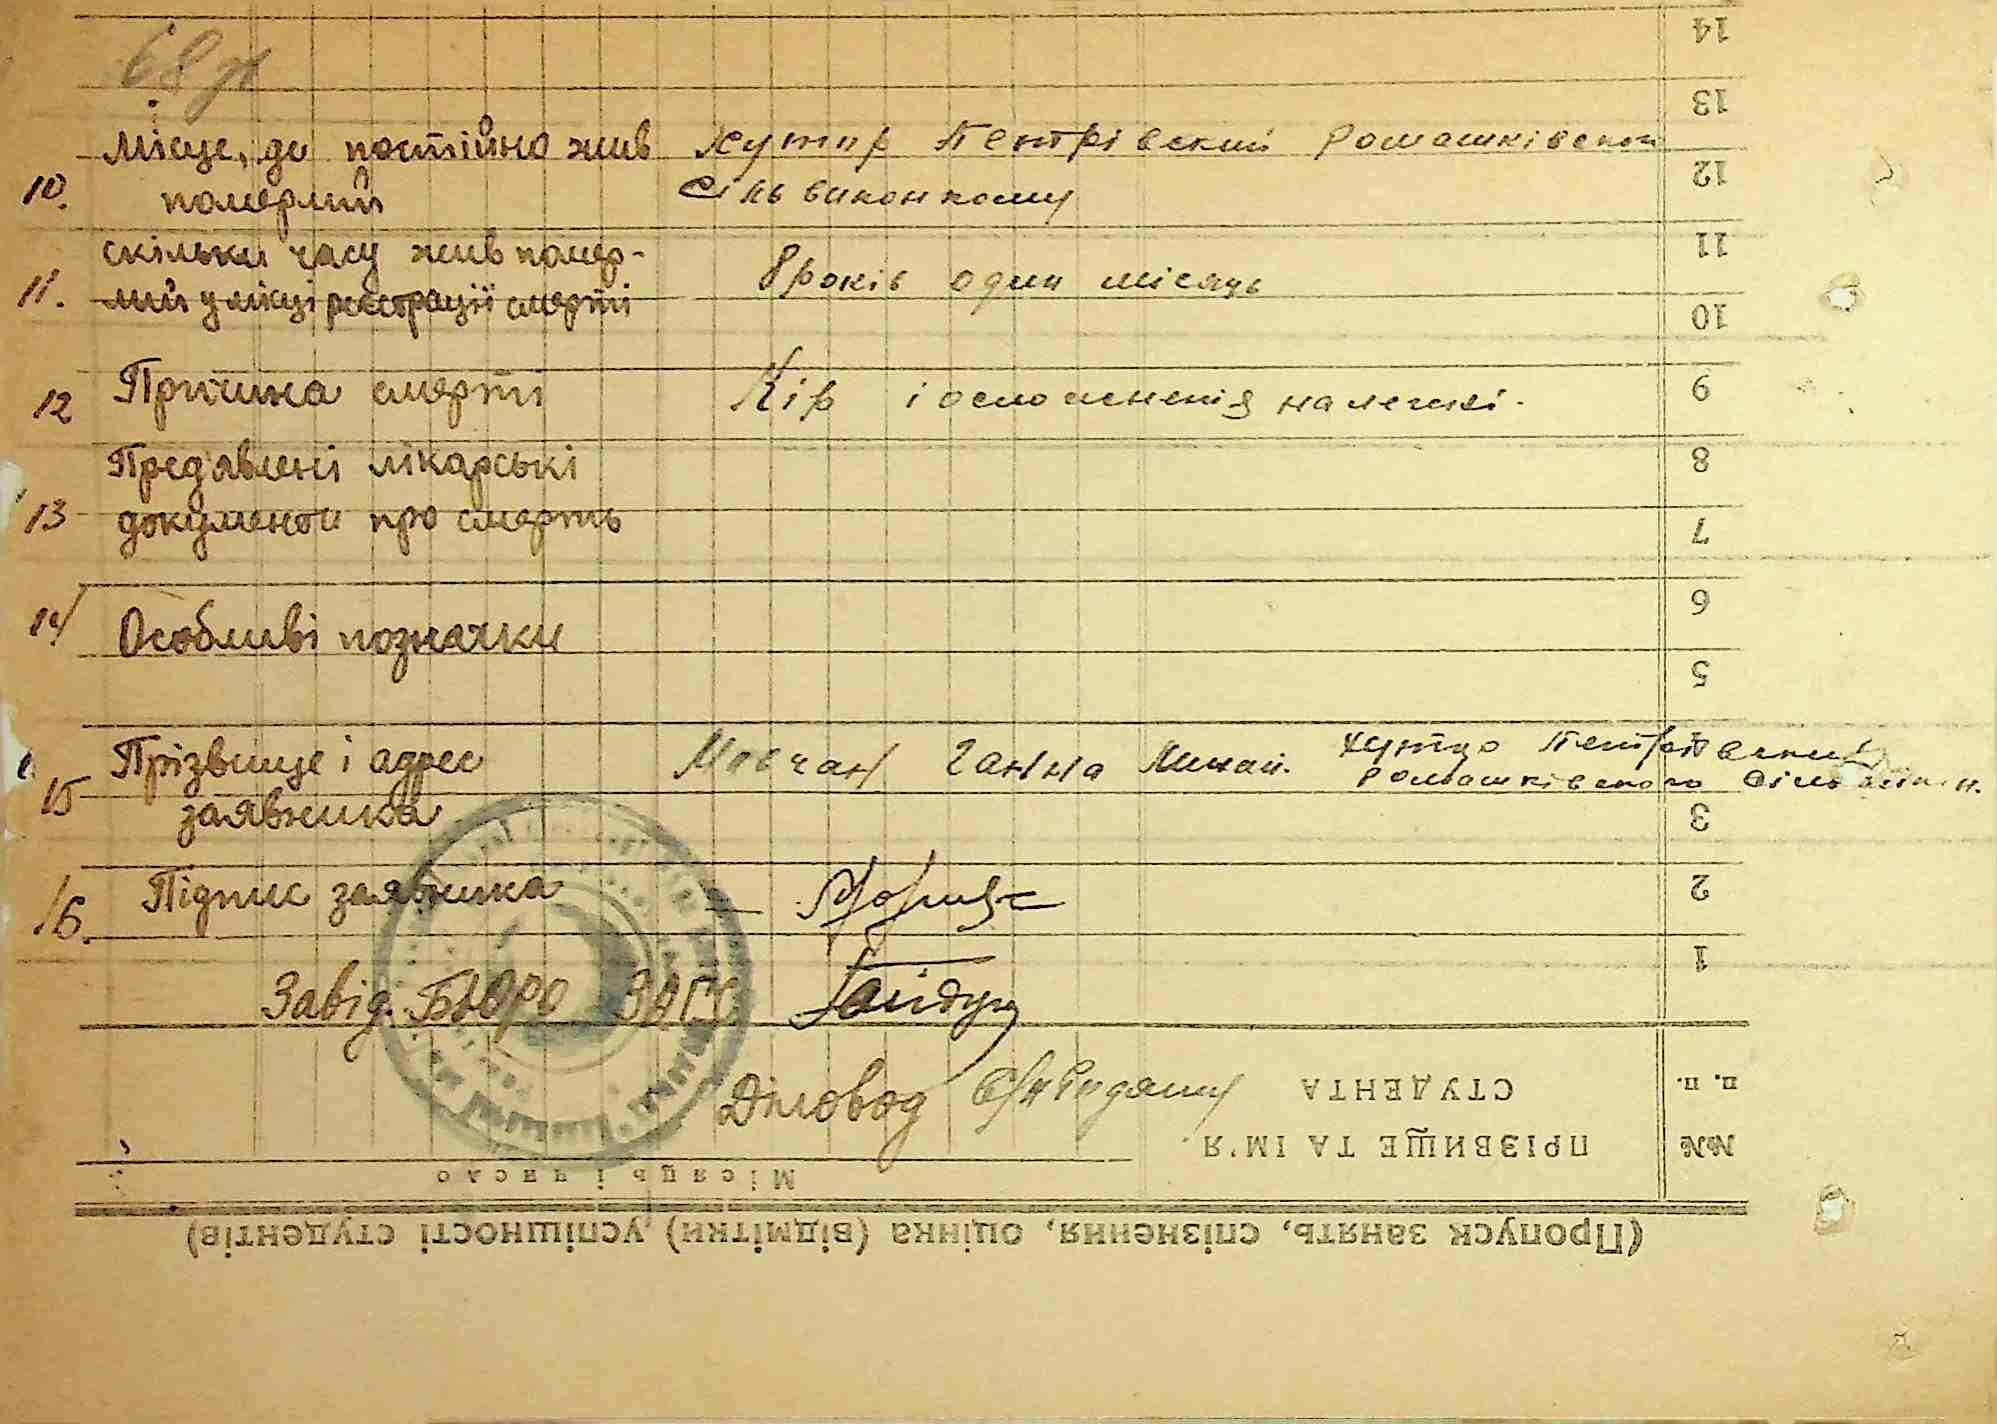 68
Місце, де постійно жив хутір Петрівский Ромашківской
10. померлий сільвиконкому
скільки часу жив помер-
11. лий у місці реєстрації смерті 8 років один місяць
12 Причина смерті Кір і осложненія на легкі.
Предявлені лікарські
13 документи про смерть
14 Особливі позначки
Прізвище і адрес Мовчан Ганна Минай. хутір Петрівский
15 заявника Ромашківского сільвикон.
16. Підпис заявника
Завід. Бюро ЗАГС Гайдук
Діловод
14
13
12
11
10
9
8
7
6
5
3
2
1
№№ п. п.
ПРІЗВИЩЕ ТА ІМ'Я
СТУДЕНТА
Місяць і число
(Пропуск занять, спізнення, оцінка (відмітки) успішності студентів)